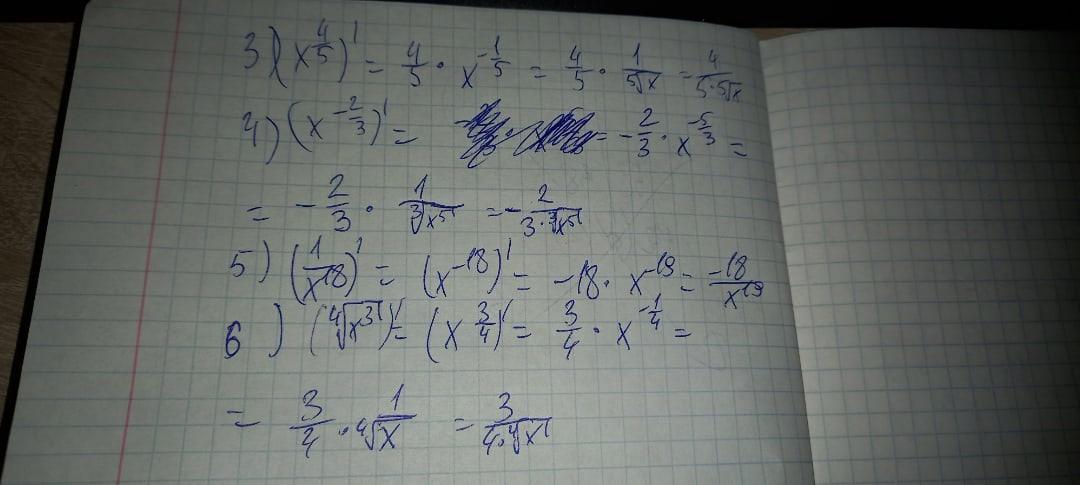 3) (x^{4/5})' = 4/5 · x^{-1/5} = 4/5 · 1/⁵√x = 4/(5·⁵√x)
4) (x^{-2/3})' = = -2/3 · x^{-5/3} =
= -2/3 · 1/³√x⁵ = -2/(3·³√x⁵)
5) (1/x^{18})' = (x^{-18})' = -18 · x^{-19} = -18/x^{19}
6) (⁴√x³)' = (x^{3/4})' = 3/4 · x^{-1/4} =
= 3/4 · 1/⁴√x = 3/(4·⁴√x)